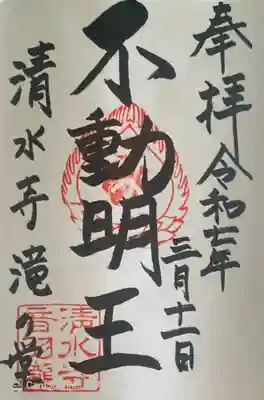 奉拝 令和七年三月十一日
不動明王
清水寺 滝の堂
清水寺
音羽瀧